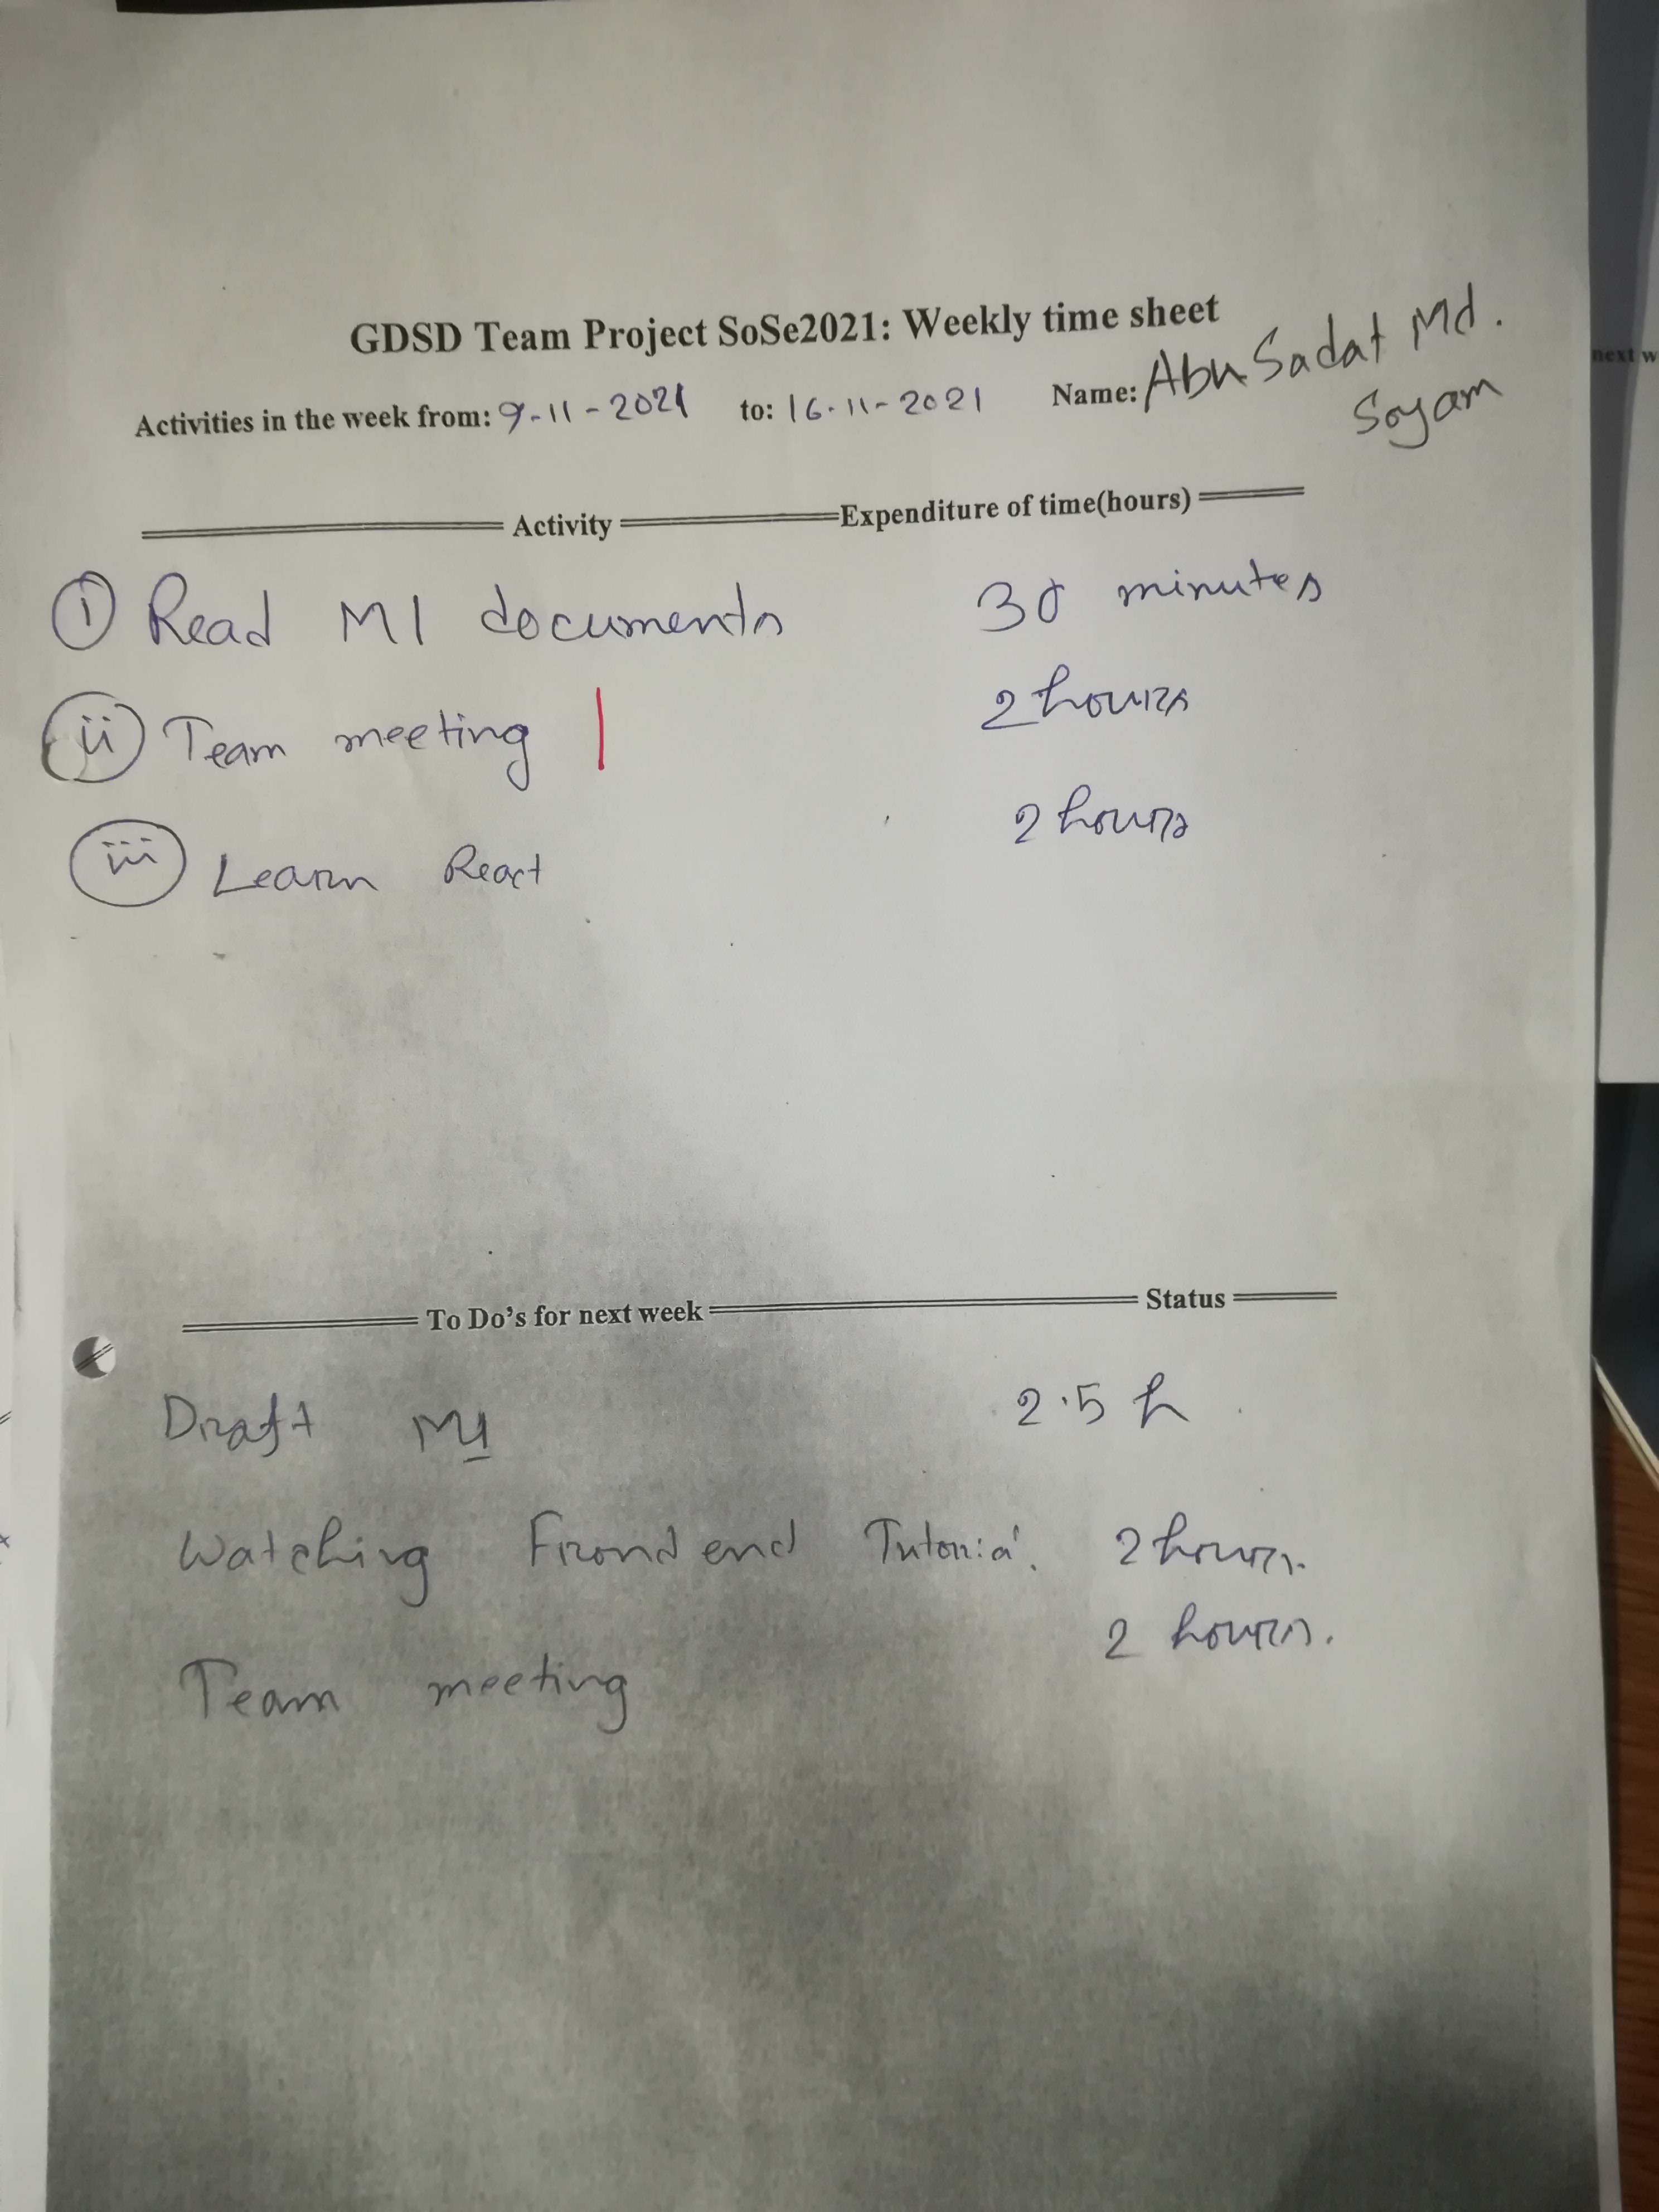 GDSD Team Project SoSe2021: Weekly time sheet
Activities in the week from: 9-11-2021 to: 16-11-2021 Name: Abu Sadat Md.
Soyam
Activity Expenditure of time(hours)
i Read M1 documents 30 minutes
ii Team meeting 2 hours
iii Learn React 2 hours
To Do's for next week Status
Draft M1 2.5 h
Watching Frond end Tutorial. 2 hours.
Team meeting 2 hours.
next w